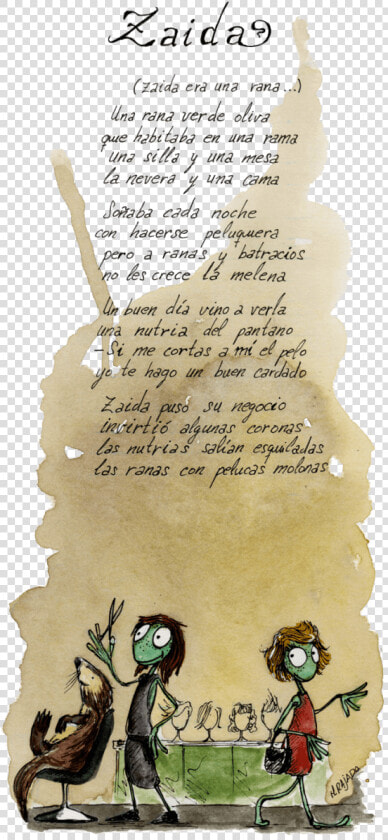 Zaida
(Zaida era una rana...)
Una rana verde oliva
que habitaba en una rama
una silla y una mesa
la nevera y una cama
Soñaba cada noche
con hacerse peluquera
pero a ranas y batracios
no les crece la melena
Un buen día vino a verla
una nutria del pantano
-Si me cortas a mí el pelo
yo te hago un buen cardado
Zaida puso su negocio
invirtió algunas coronas
las nutrias salían esquiladas
las ranas con pelucas molonas
N.RAJADO